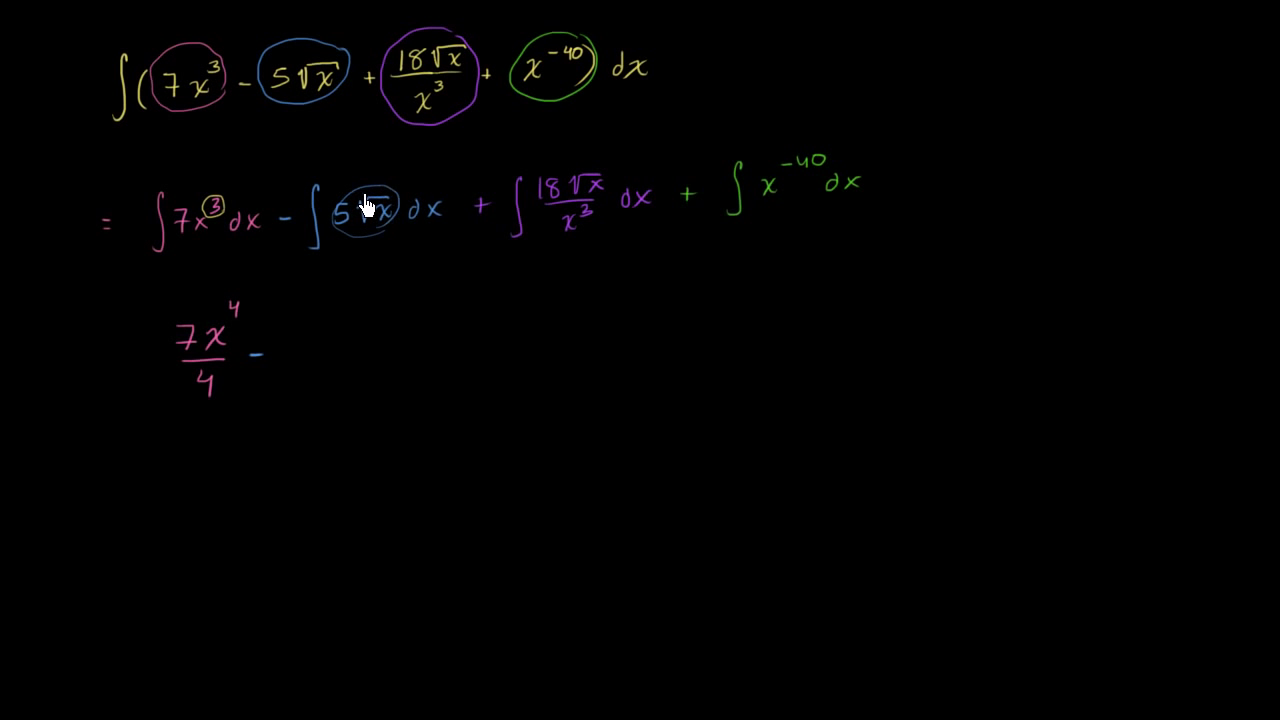 ∫(7x³ - 5√x + 18√x/x³ + x⁻⁴⁰) dx
= ∫7x³dx - ∫5√x dx + ∫18√x/x³ dx + ∫x⁻⁴⁰dx
7x⁴/4 -